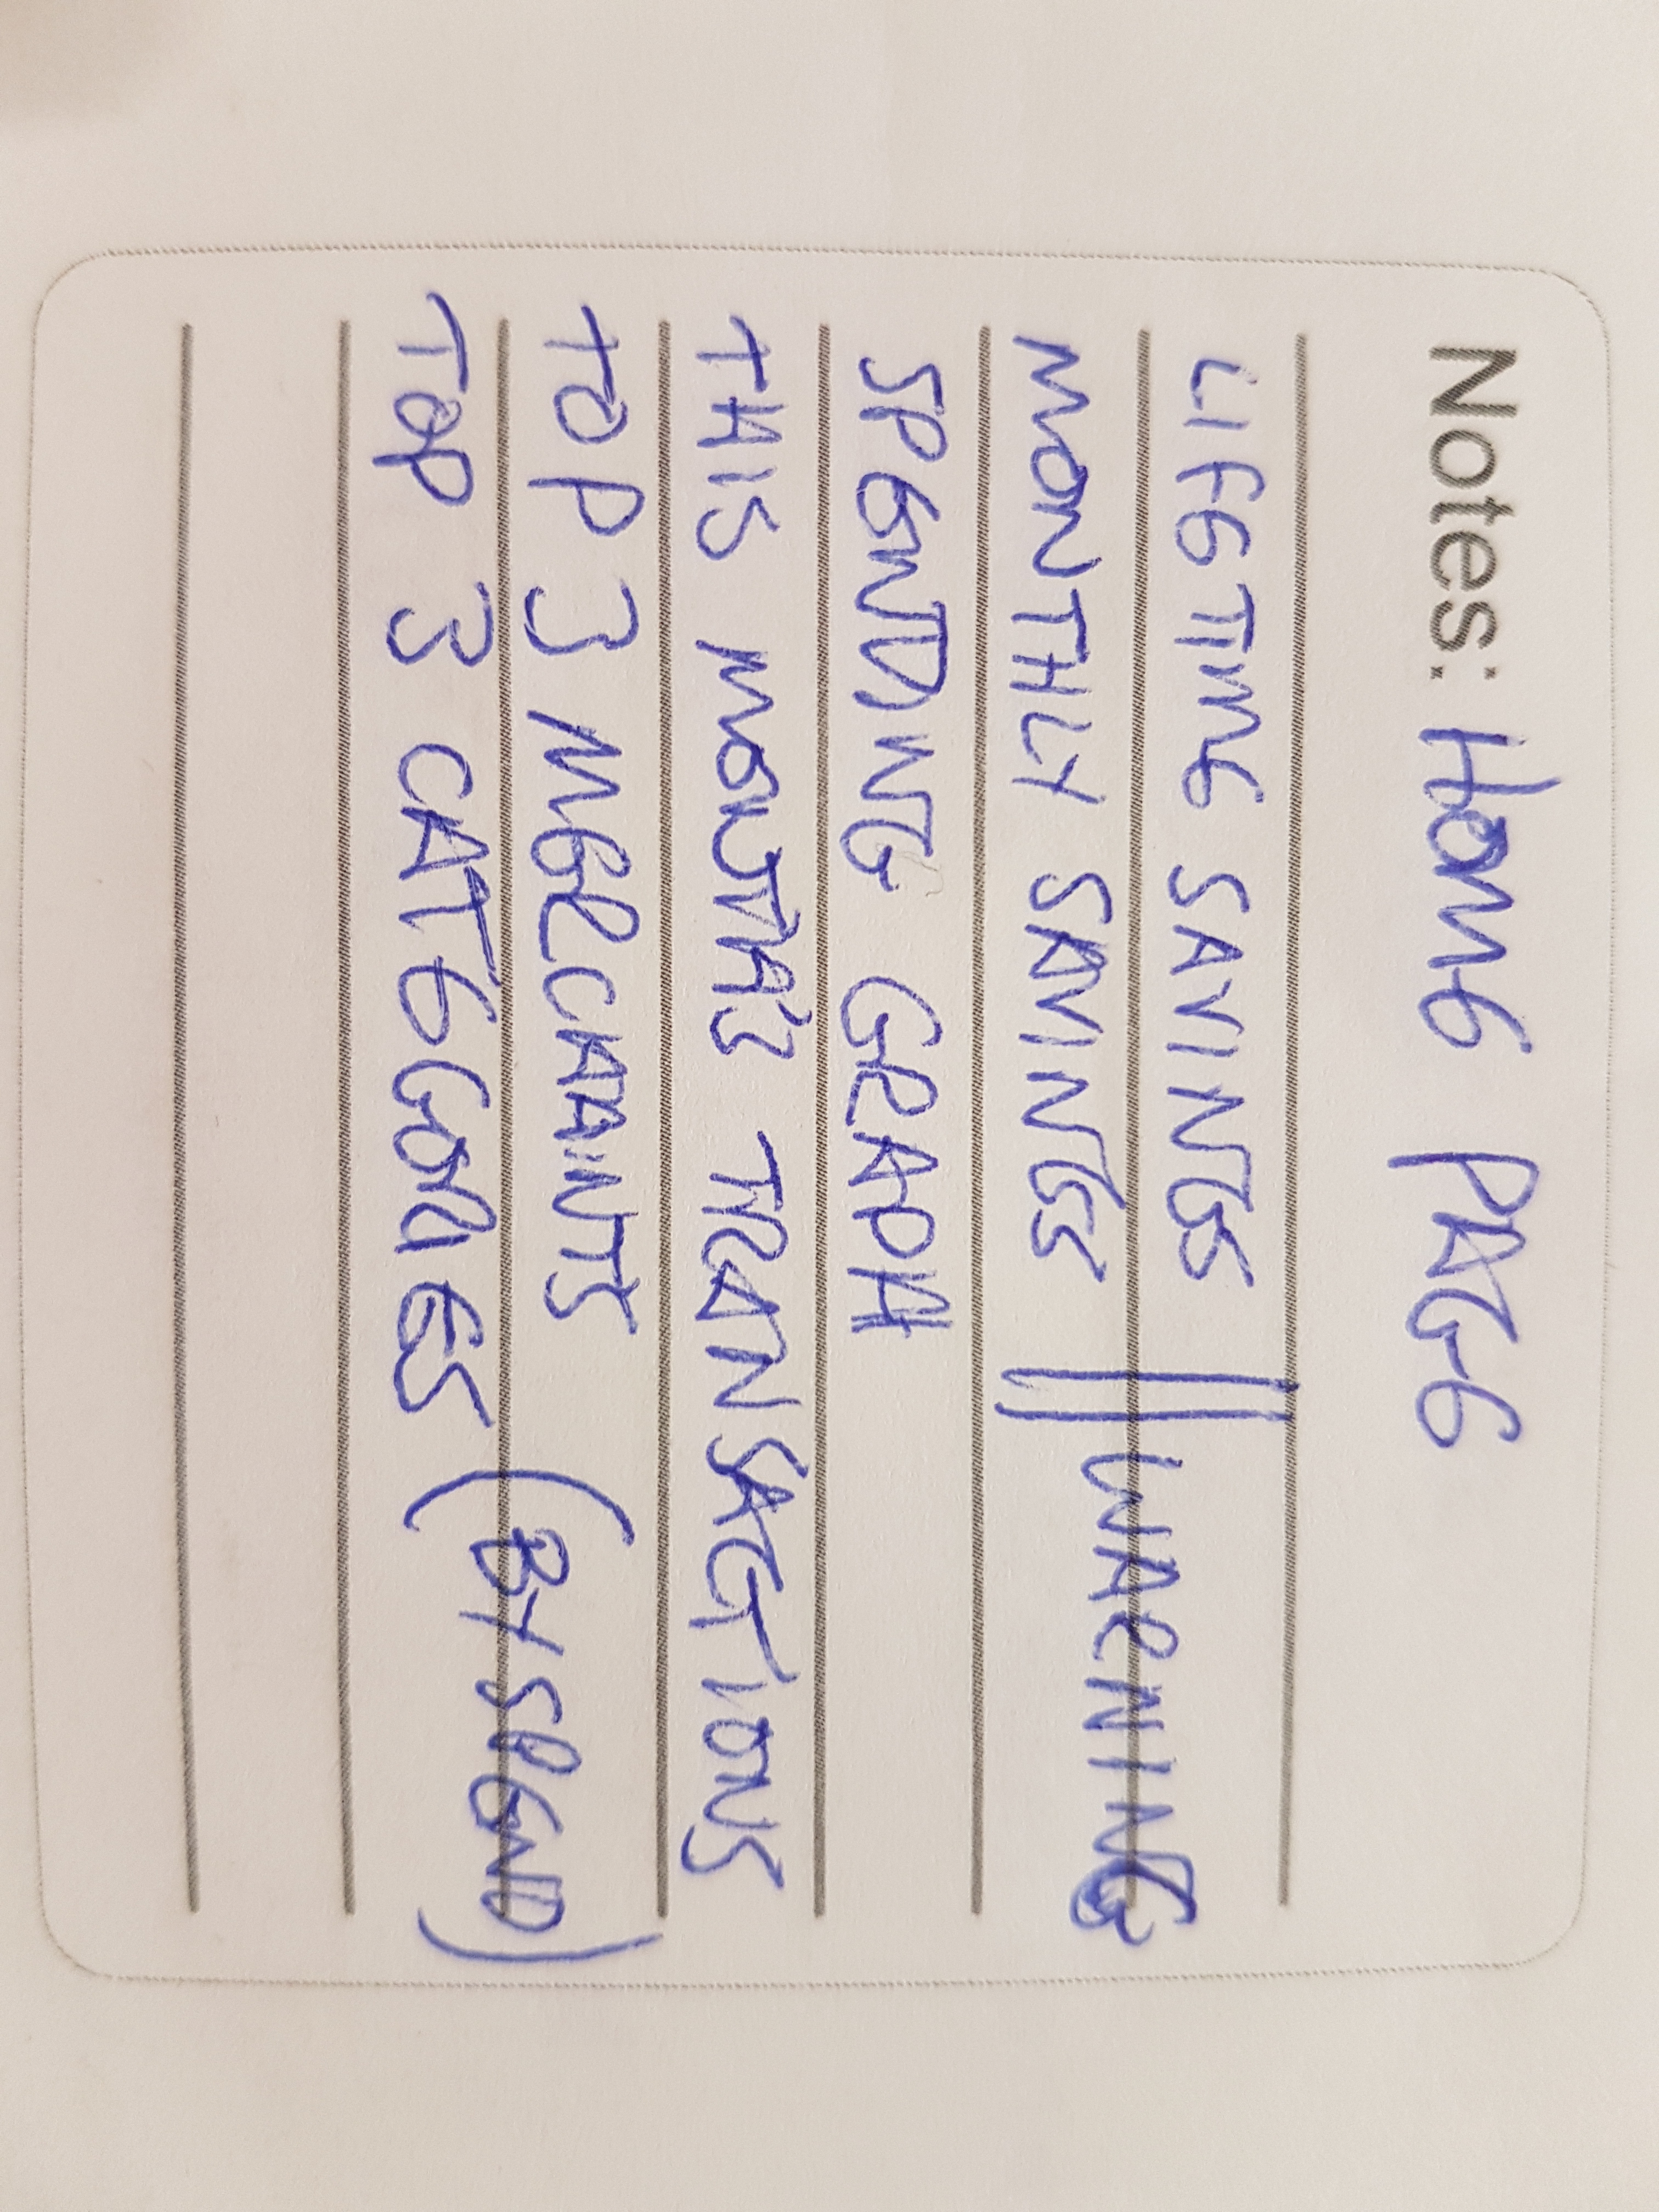 Notes: HOME PAGE
LIFETIME SAVINGS
MONTHLY SAVINGS || WARNING
SPENDING GRAPH
THIS MONTH'S TRANSACTIONS
TOP 3 MERCHANTS
TOP 3 CATEGORIES (BY SPEND)